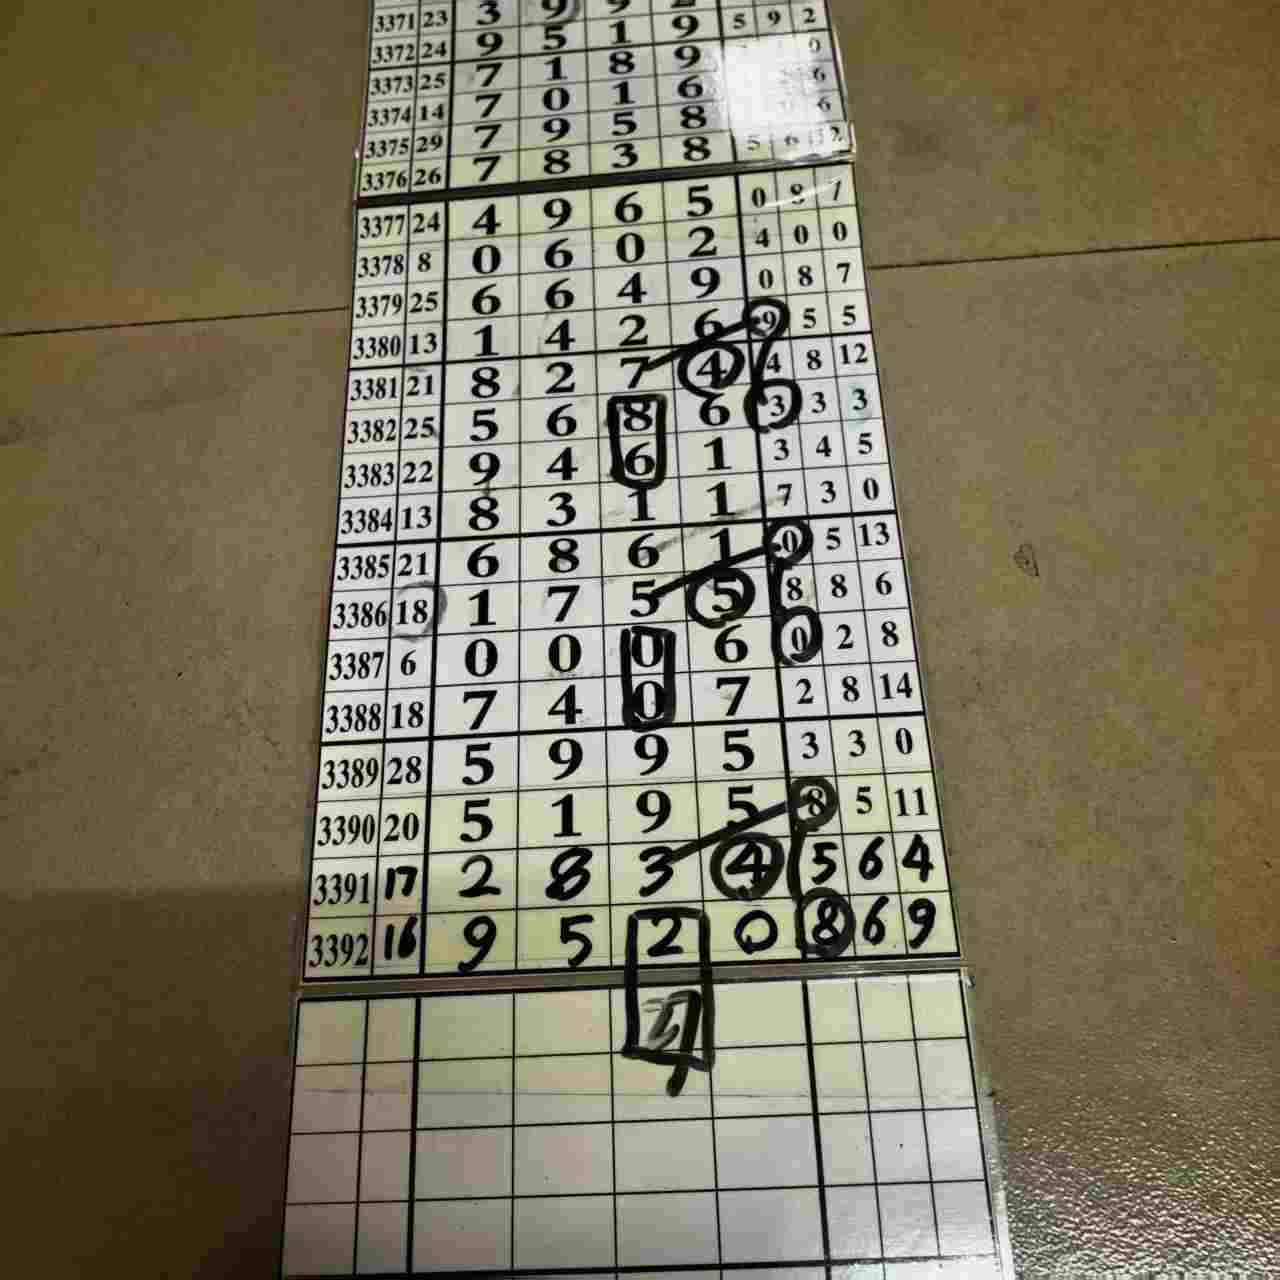 3371 23 3 9 9 2 5 9 2
3372 24 9 5 1 9 0
3373 25 7 1 8 9 6
3374 14 7 0 1 6 6
3375 29 7 9 5 8 5 6 12
3376 26 7 8 3 8
3377 24 4 9 6 5 0 8 7
3378 8 0 6 0 2 4 0 0
3379 25 6 6 4 9 0 8 7
3380 13 1 4 2 6 9 5 5
3381 21 8 2 7 4 4 8 12
3382 25 5 6 8 6 3 3 3
3383 22 9 4 6 1 3 4 5
3384 13 8 3 1 1 7 3 0
3385 21 6 8 6 1 0 5 13
3386 18 1 7 5 5 8 8 6
3387 6 0 0 0 6 0 2 8
3388 18 7 4 0 7 2 8 14
3389 28 5 9 9 5 3 3 0
3390 20 5 1 9 5 8 5 11
3391 17 2 8 3 4 5 6 4
3392 16 9 5 2 0 8 6 9